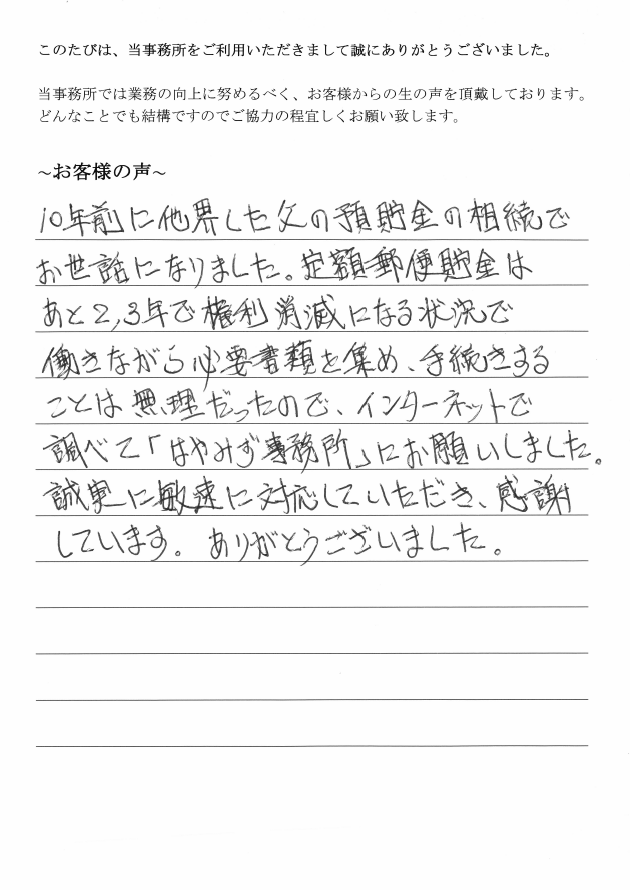 このたびは、当事務所をご利用いただきまして誠にありがとうございました。
当事務所では業務の向上に努めるべく、お客様からの生の声を頂戴しております。
どんなことでも結構ですのでご協力の程宜しくお願い致します。
~お客様の声~
10年前に他界した父の預貯金の相続で
お世話になりました。定額郵便貯金は
あと2,3年で権利消滅になる状況で
働きながら必要書類を集め、手続きする
ことは無理だったので、インターネットで
調べて「はやみず事務所」にお願いしました。
誠実に敏速に対応していただき、感謝
しています。ありがとうございました。